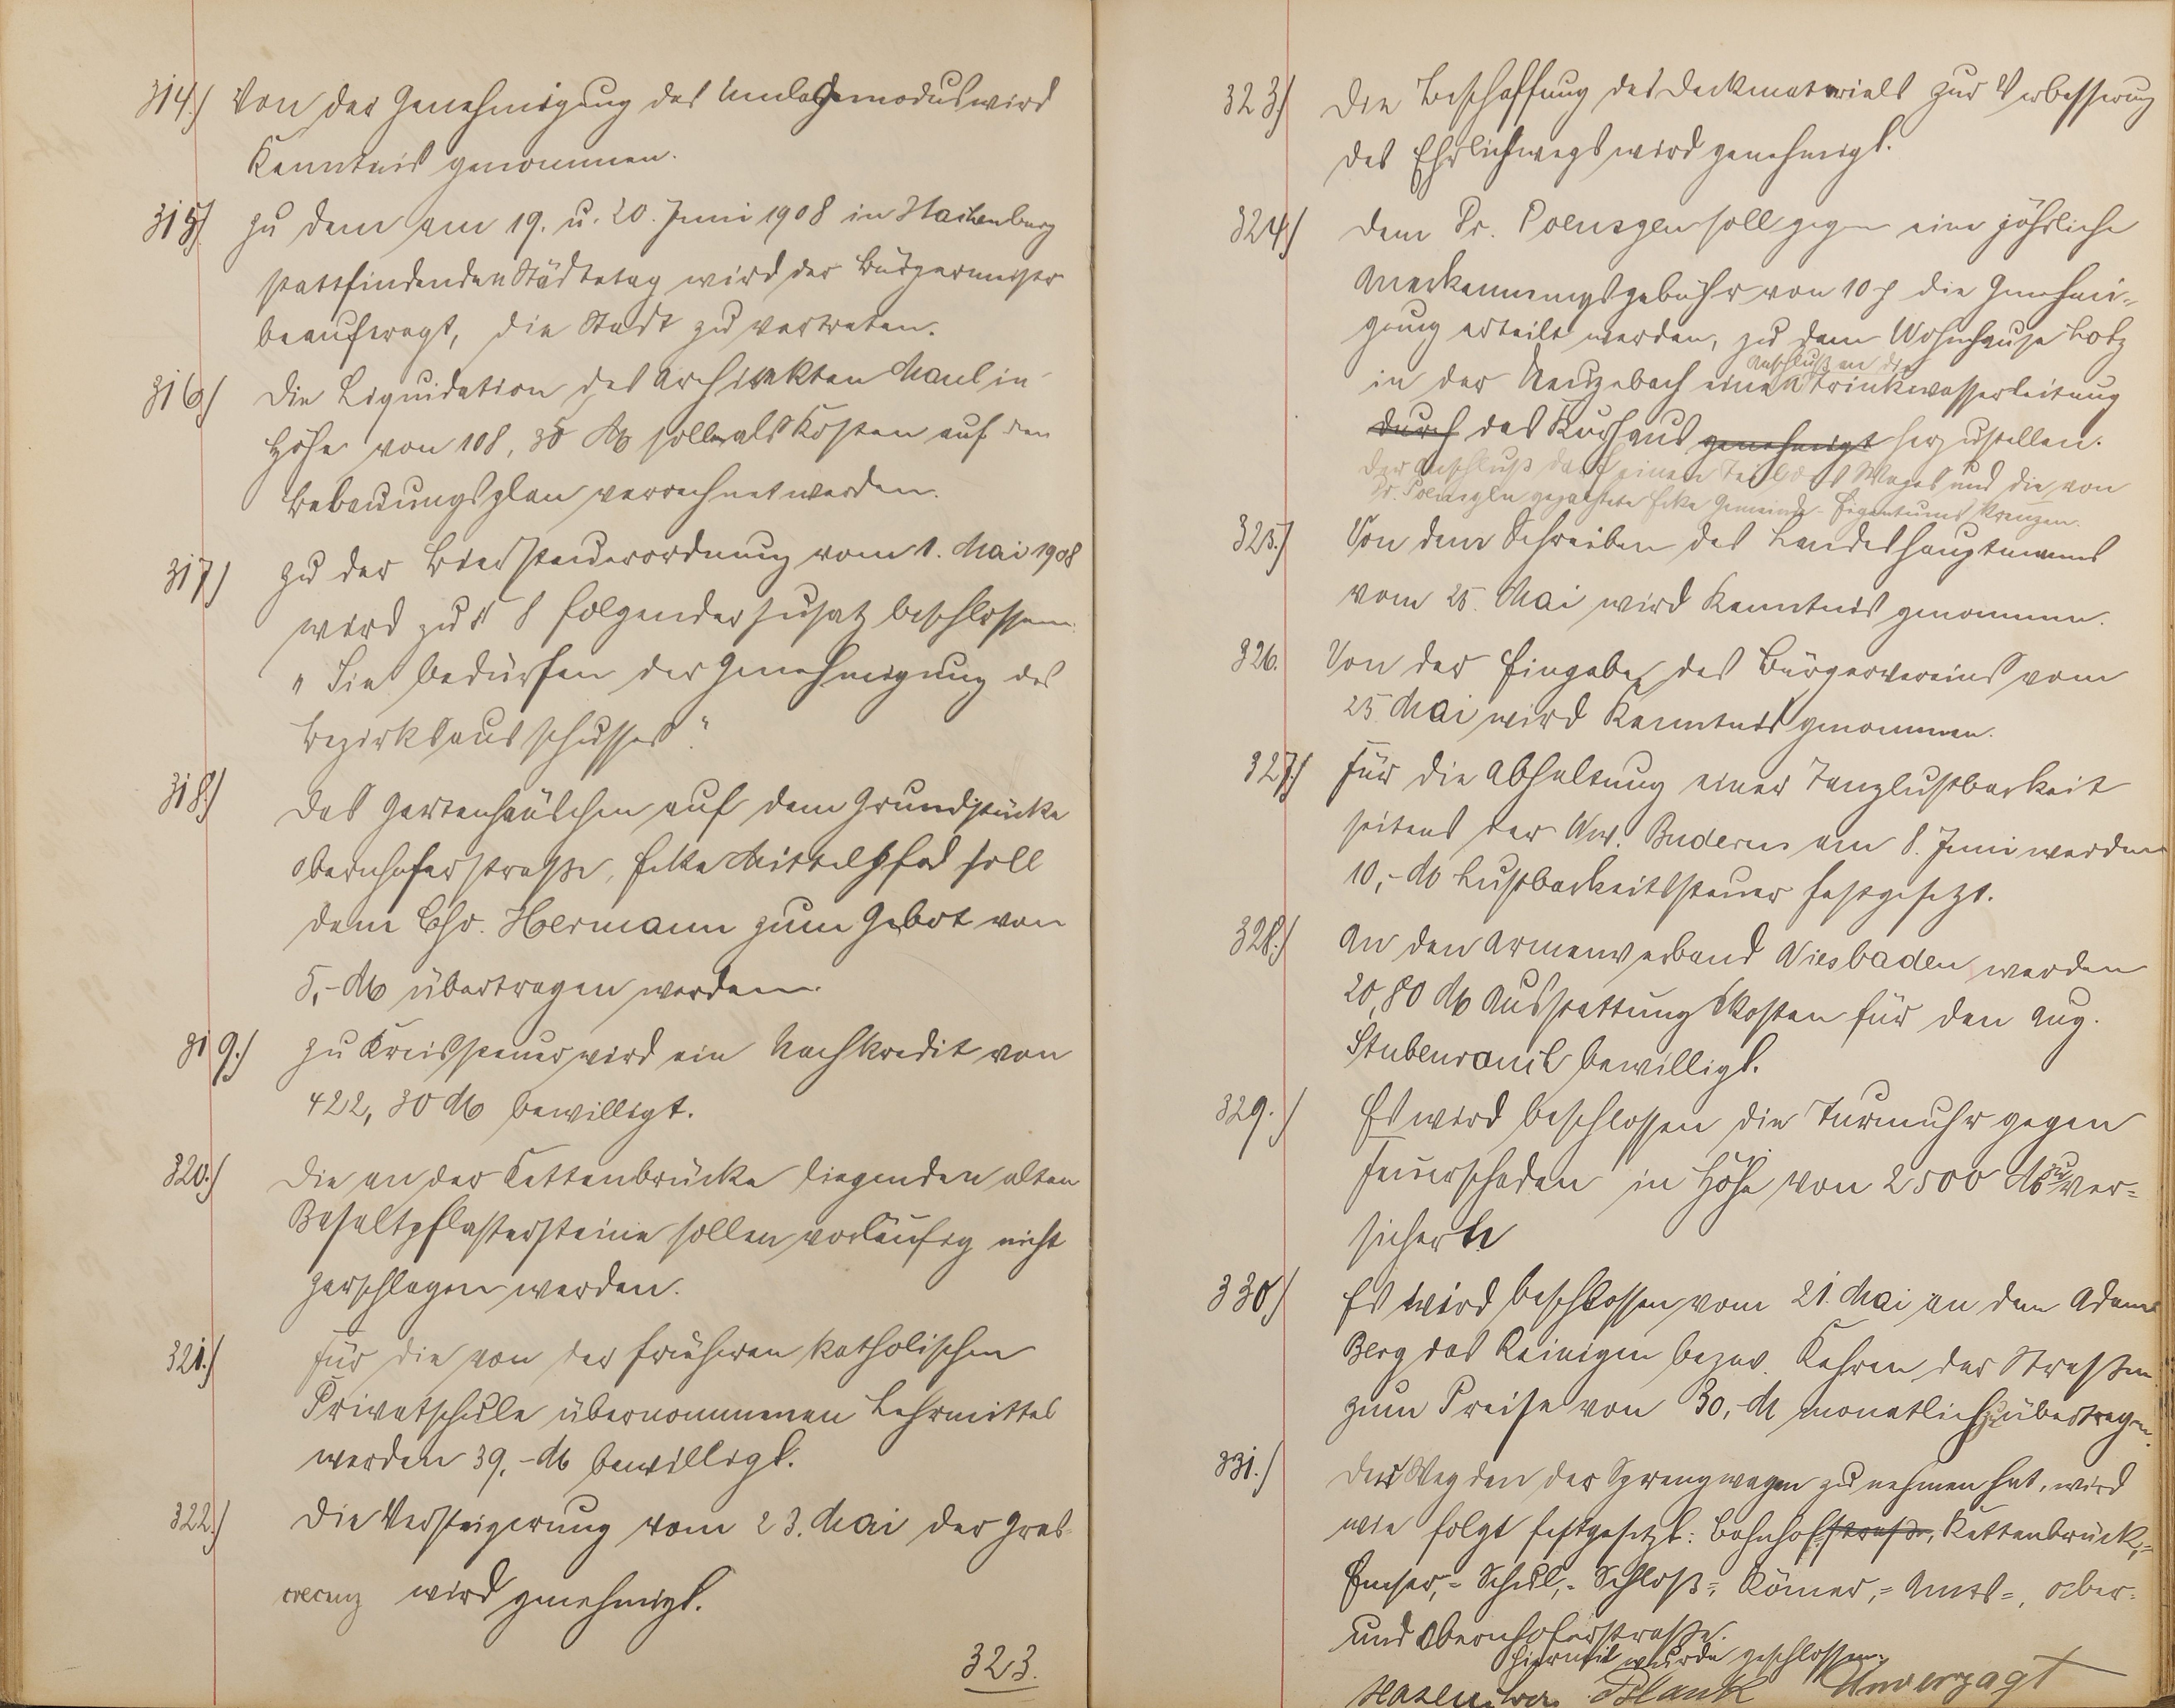 314.) Von der Genehmigung des Umlagemodus wird
Kenntnis genommen.
315.) Zu dem am 19. u. 20. Juni 1908 in Hachenburg
stattfindenden Städtetag wird der Bürgermeister
beauftragt, die Stadt zu vertreten.
316.) Die Liquidation des Architekten Maul in
Höhe von 108,30 M sollen als Kosten auf den
Bebauungsplan verrechnet werden.
317.) Zu der Biersteuerordnung vom 1. Mai 1908
wird zu § 8 folgender Zusatz beschlossen:
"Sie bedürfen der Genehmigung des
Bezirksausschusses."
318.) Das Gartenhäuschen auf dem Grundstücke
Obernhoferstraße, Ecke Mittelpfad soll
dem Chr. Hermann zum Gebot von
5,- M übertragen werden.
319.) Zu Kreissteuer wird ein Nachkredit von
422,30 M bewilligt.
320.) Die an der Kettenbrücke liegenden alten
Basaltpflastersteine sollen vorläufig nicht
zerschlagen werden.
321.) Für die von der früheren katholischen
Privatschule übernommenen Lehrmittel
werden 39,- M bewilligt.
322.) Die Versteigerung vom 23. Mai der Gras-
crecenz wird genehmigt.
323.
323.) Die Beschaffung des Deckmaterials zur Verbesserung
des Ehrlichwegs wird genehmigt.
324.) Dem Dr. Poensgen soll gegen eine jährliche
Anerkennungsgebühr von 10 die Genehmi-
gung erteilt werden, zu dem Wohnhause Lotz
in der Neuzebach einen Anschluß an die Trinkwasserleitung
durch das Kurhaus genehmigt herzustellen.
Der Anschluß darf einen Teil des Weges und die von
Dr. Poensgen gepachtete Ecke Gemeinde-Eigentums kreuzen.
325.) Von dem Schreiben des Landeshauptmanns
vom 25. Mai wird Kenntnis genommen.
326. Von der Eingabe des Bürgervereins vom
25. Mai wird Kenntnis genommen.
327.) Für die Abhaltung einer Tanzlustbarkeit
seitens der Ww. Buderus am 8. Juni werden
10,- M Lustbarkeitssteuer festgesetzt.
328.) An den Armenverband Wiesbaden werden
20,80 M Ausstattungskosten für den Aug.
Stubenrauch bewilligt.
329.) Es wird beschlossen die Turmuhr gegen
Feuerschaden in Höhe von 2500 M zu ver-
sichern
330.) Es wird beschlossen vom 21. Mai an dem Adam
Berg das Reinigen bezw. Kehren der Straßen
zum Preise von 30,- M monatlich zu übertragen.
331.) Der Weg den der Sprengwagen zu nehmen hat, wird
wie folgt festgesetzt: Bahnhofstraße, Kettenbrück,-
Emser,- Schul,- Schloß-, Römer,- Amts-, Ober-
und Obernhoferstraße.
Hiermit wurde geschlossen.
Blank Unverzagt